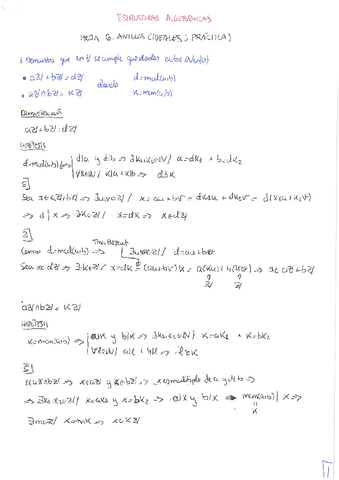 ESTRUCTURAS ALGEBRAICAS
HOJA 6. ANILLOS (IDEALES; PRÁCTICA)
Demuestra que en ℤ se cumple que dados a,b∈ℕ\{0}
• aℤ+bℤ=dℤ donde d=mcd(a,b)
• aℤ∩bℤ=kℤ k=mcm(a,b)
Demostración
aℤ+bℤ=dℤ
Hipótesis
d=mcd(a,b) d|a y d|b ⇒ ∃k₁,k₂∈ℕ/ a=dk₁ b=dk₂
⊆
Sea x∈aℤ+bℤ ⇒ ∃u,v∈ℤ/ x=au+bv = dk₁u+dk₂v = d(k₁u+k₂v)
⇒ d|x ⇒ ∃k∈ℤ/ x=dk ⇒ x∈dℤ
⊇
Como d=mcd(a,b) ⇒ ∃u,v∈ℤ/ d=au+bv
Sea x∈dℤ ⇒ ∃k∈ℤ/ x=dk=(au+bv)k = a(ku)+b(kv) ⇒ x∈aℤ+bℤ
• aℤ∩bℤ=kℤ
Hipótesis
k=mcm(a,b) a|k y b|k ⇒ ∃k₁,k₂∈ℕ/ k=ak₁ k=bk₂
⊆
x∈aℤ∩bℤ ⇒ x∈aℤ y x∈bℤ ⇒ x es múltiplo de a y de b ⇒
⇒ ∃k₁,k₂∈ℤ/ x=ak₁ y x=bk₂ ⇒ a|x y b|x ⇒ mcm(a,b)|x ⇒
k
∃m∈ℤ/ x=mk ⇒ x∈kℤ
1